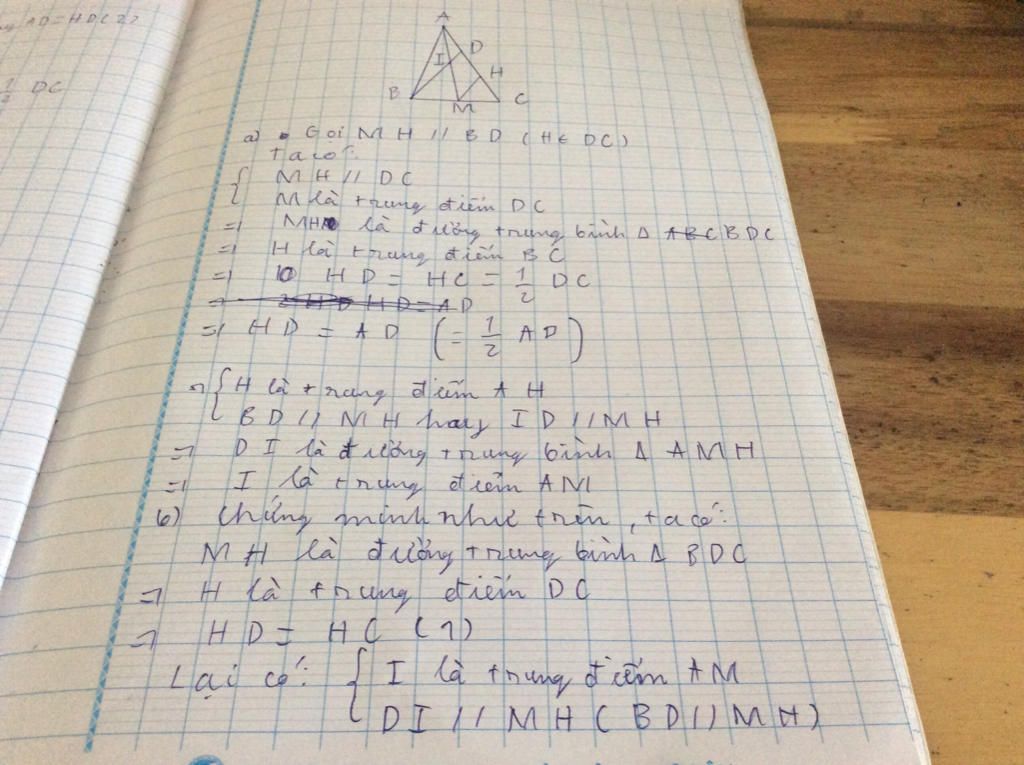 AD = HDC2?
1/2 DC
A
D
I
H
B
M
C
a) Gọi MH // BD (H ∈ DC)
ta có:
{ MH // DC
M là trung điểm DC
=> MH là đường trung bình Δ ABC BDC
=> H là trung điểm BC
=> HD = HC = 1/2 DC
=> HD = AD
=> HD = AD (= 1/2 AD)
=> { H là trung điểm AH
BD // MH hay ID // MH
=> DI là đường trung bình Δ AMH
=> I là trung điểm AM
b) Chứng minh như trên, ta có:
MH là đường trung bình Δ BDC
=> H là trung điểm DC
=> HD = HC (1)
Lại có: { I là trung điểm AM
DI // MH (BD // MH)